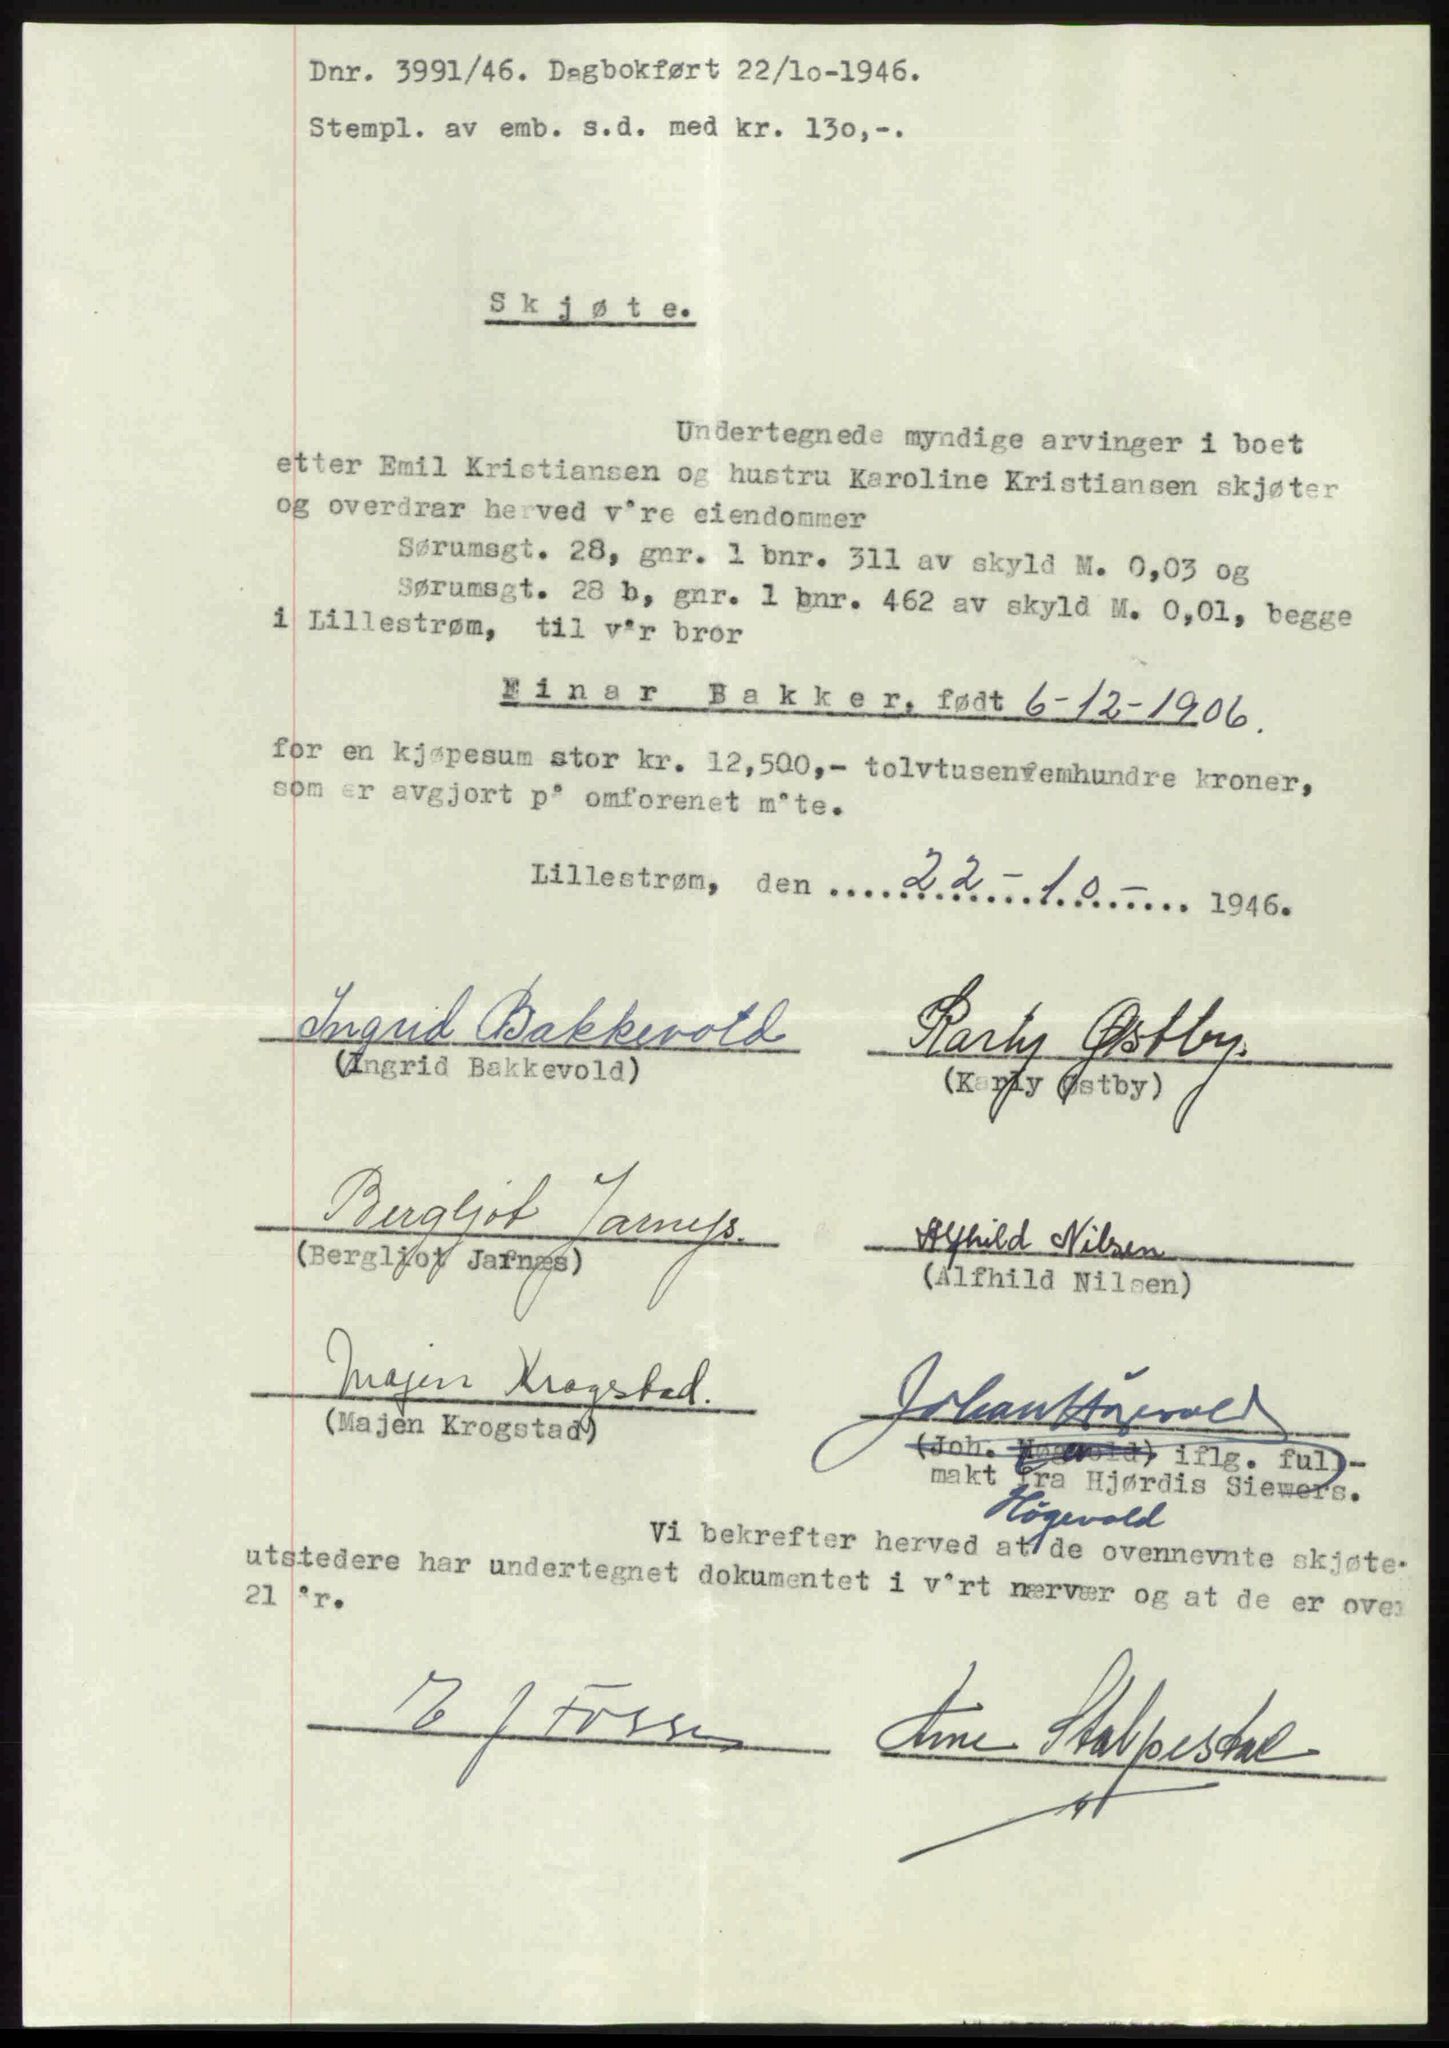 Dnr. 3991/46. Dagbokført 22/lo-1946.
Stempl. av emb. s.d. med kr. 13o,-.
S k j ø t e.
Undertegnede myndige arvinger i boet
etter Emil Kristiansen og hustru Karoline Kristiansen skjøter
og overdrar herved v°re eiendommer
Sørumsgt. 28, gnr. 1 bnr. 311 av skyld M. 0,03 og
Sørumsgt. 28 b, gnr. 1 bnr. 462 av skyld M. 0,01, begge
i Lillestrøm, til v°r bror
E i n a r  B a k k e r, født 6-12-1906.
for en kjøpesum stor kr. 12,500,- tolvtusenfemhundre kroner,
som er avgjort p° omforenet m°te.
Lillestrøm, den ..... 22-10- ..... 1946.
Ingrid Bakkevold Karly Østby.
(Ingrid Bakkevold) (Karly Østby)
Bergljot Jarness. Alfhild Nilsen
(Bergliot Jarnæs) (Alfhild Nilsen)
Majen Krogstad. Johan Högevold
(Majen Krogstad) (Joh. Høgevold) iflg. full-
makt fra Hjørdis Siewers.
Högevold
Vi bekrefter herved at de ovennevnte skjøte-
utstedere har undertegnet dokumentet i v°rt nærvær og at de er over
21 °r.
E J Fossen Arne Stalpestad